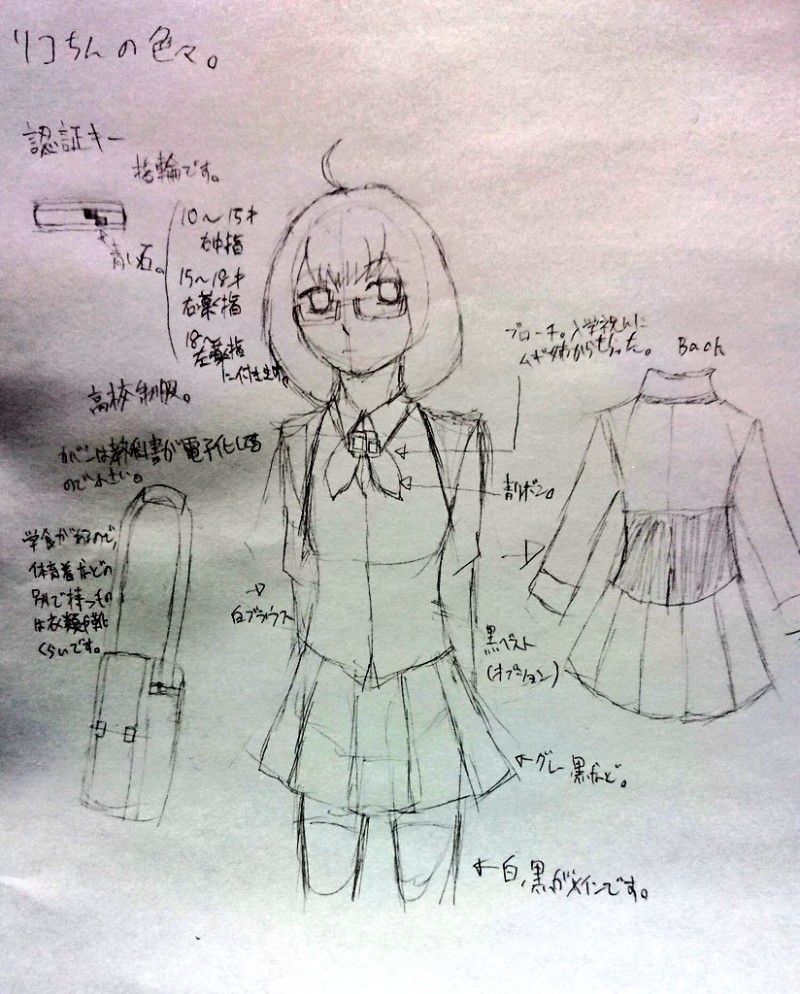 リコちんの色々。
認証キー
指輪です。
青い石。
10〜15才
右中指
15〜18才
右薬指
18〜
左薬指
に付きます。
高校制服。
カバンは教科書が電子化してる
ので小さい。
学食があるので、
体育着などの
別で持つもの
は衣類や靴
くらいです。
ブローチ。入学祝いに
からもらった。
Back
青リボン。
白ブラウス
黒ベスト
(オプション)
グレー 黒など。
白、黒がメインです。